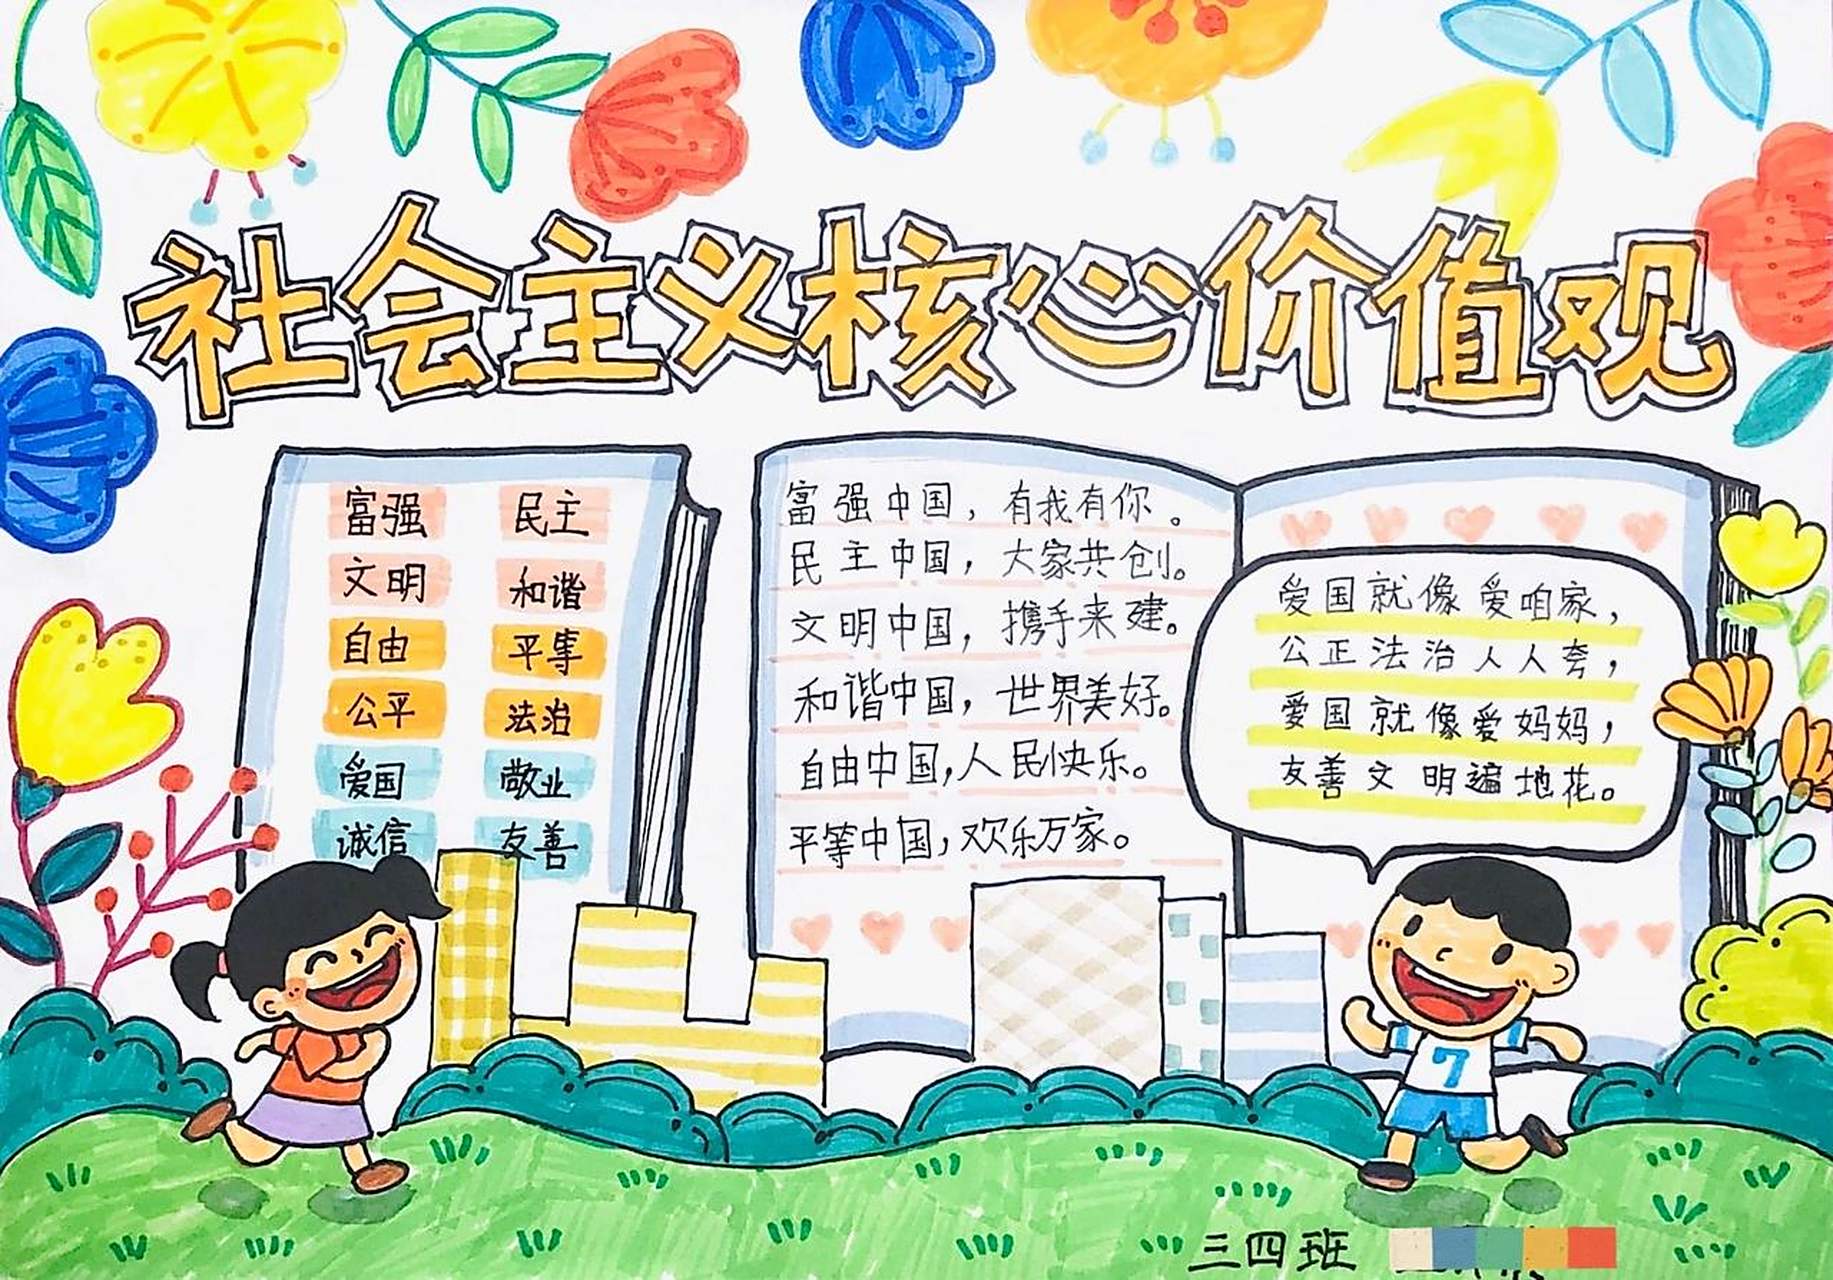 社会主义核心价值观
富强 民主
文明 和谐
自由 平等
公平 法治
爱国 敬业
诚信 友善
富强中国，有我有你。
民主中国，大家共创。
文明中国，携手来建。
和谐中国，世界美好。
自由中国，人民快乐。
平等中国，欢乐万家。
爱国就像爱咱家，
公正法治人人夸，
爱国就像爱妈妈，
友善文明遍地花。
7
三四班